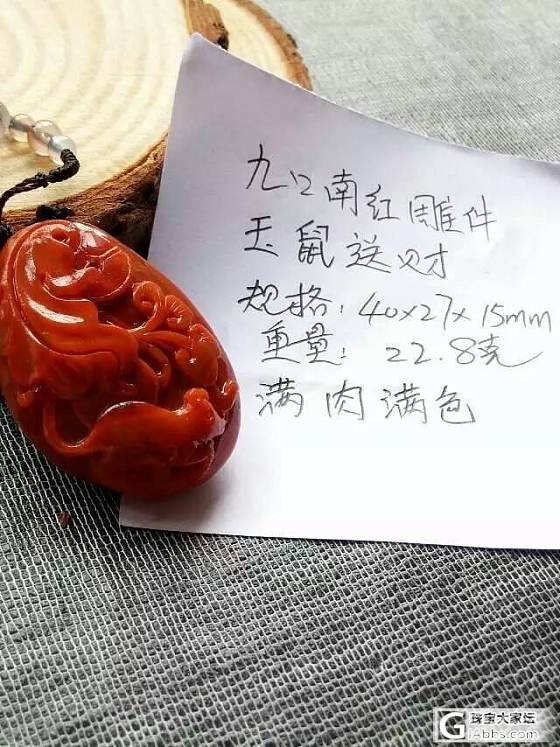 九口南红雕件
玉鼠送财
规格：40×27×15mm
重量：22.8克
满肉满色
珠宝大家坛
GiAbbs.com